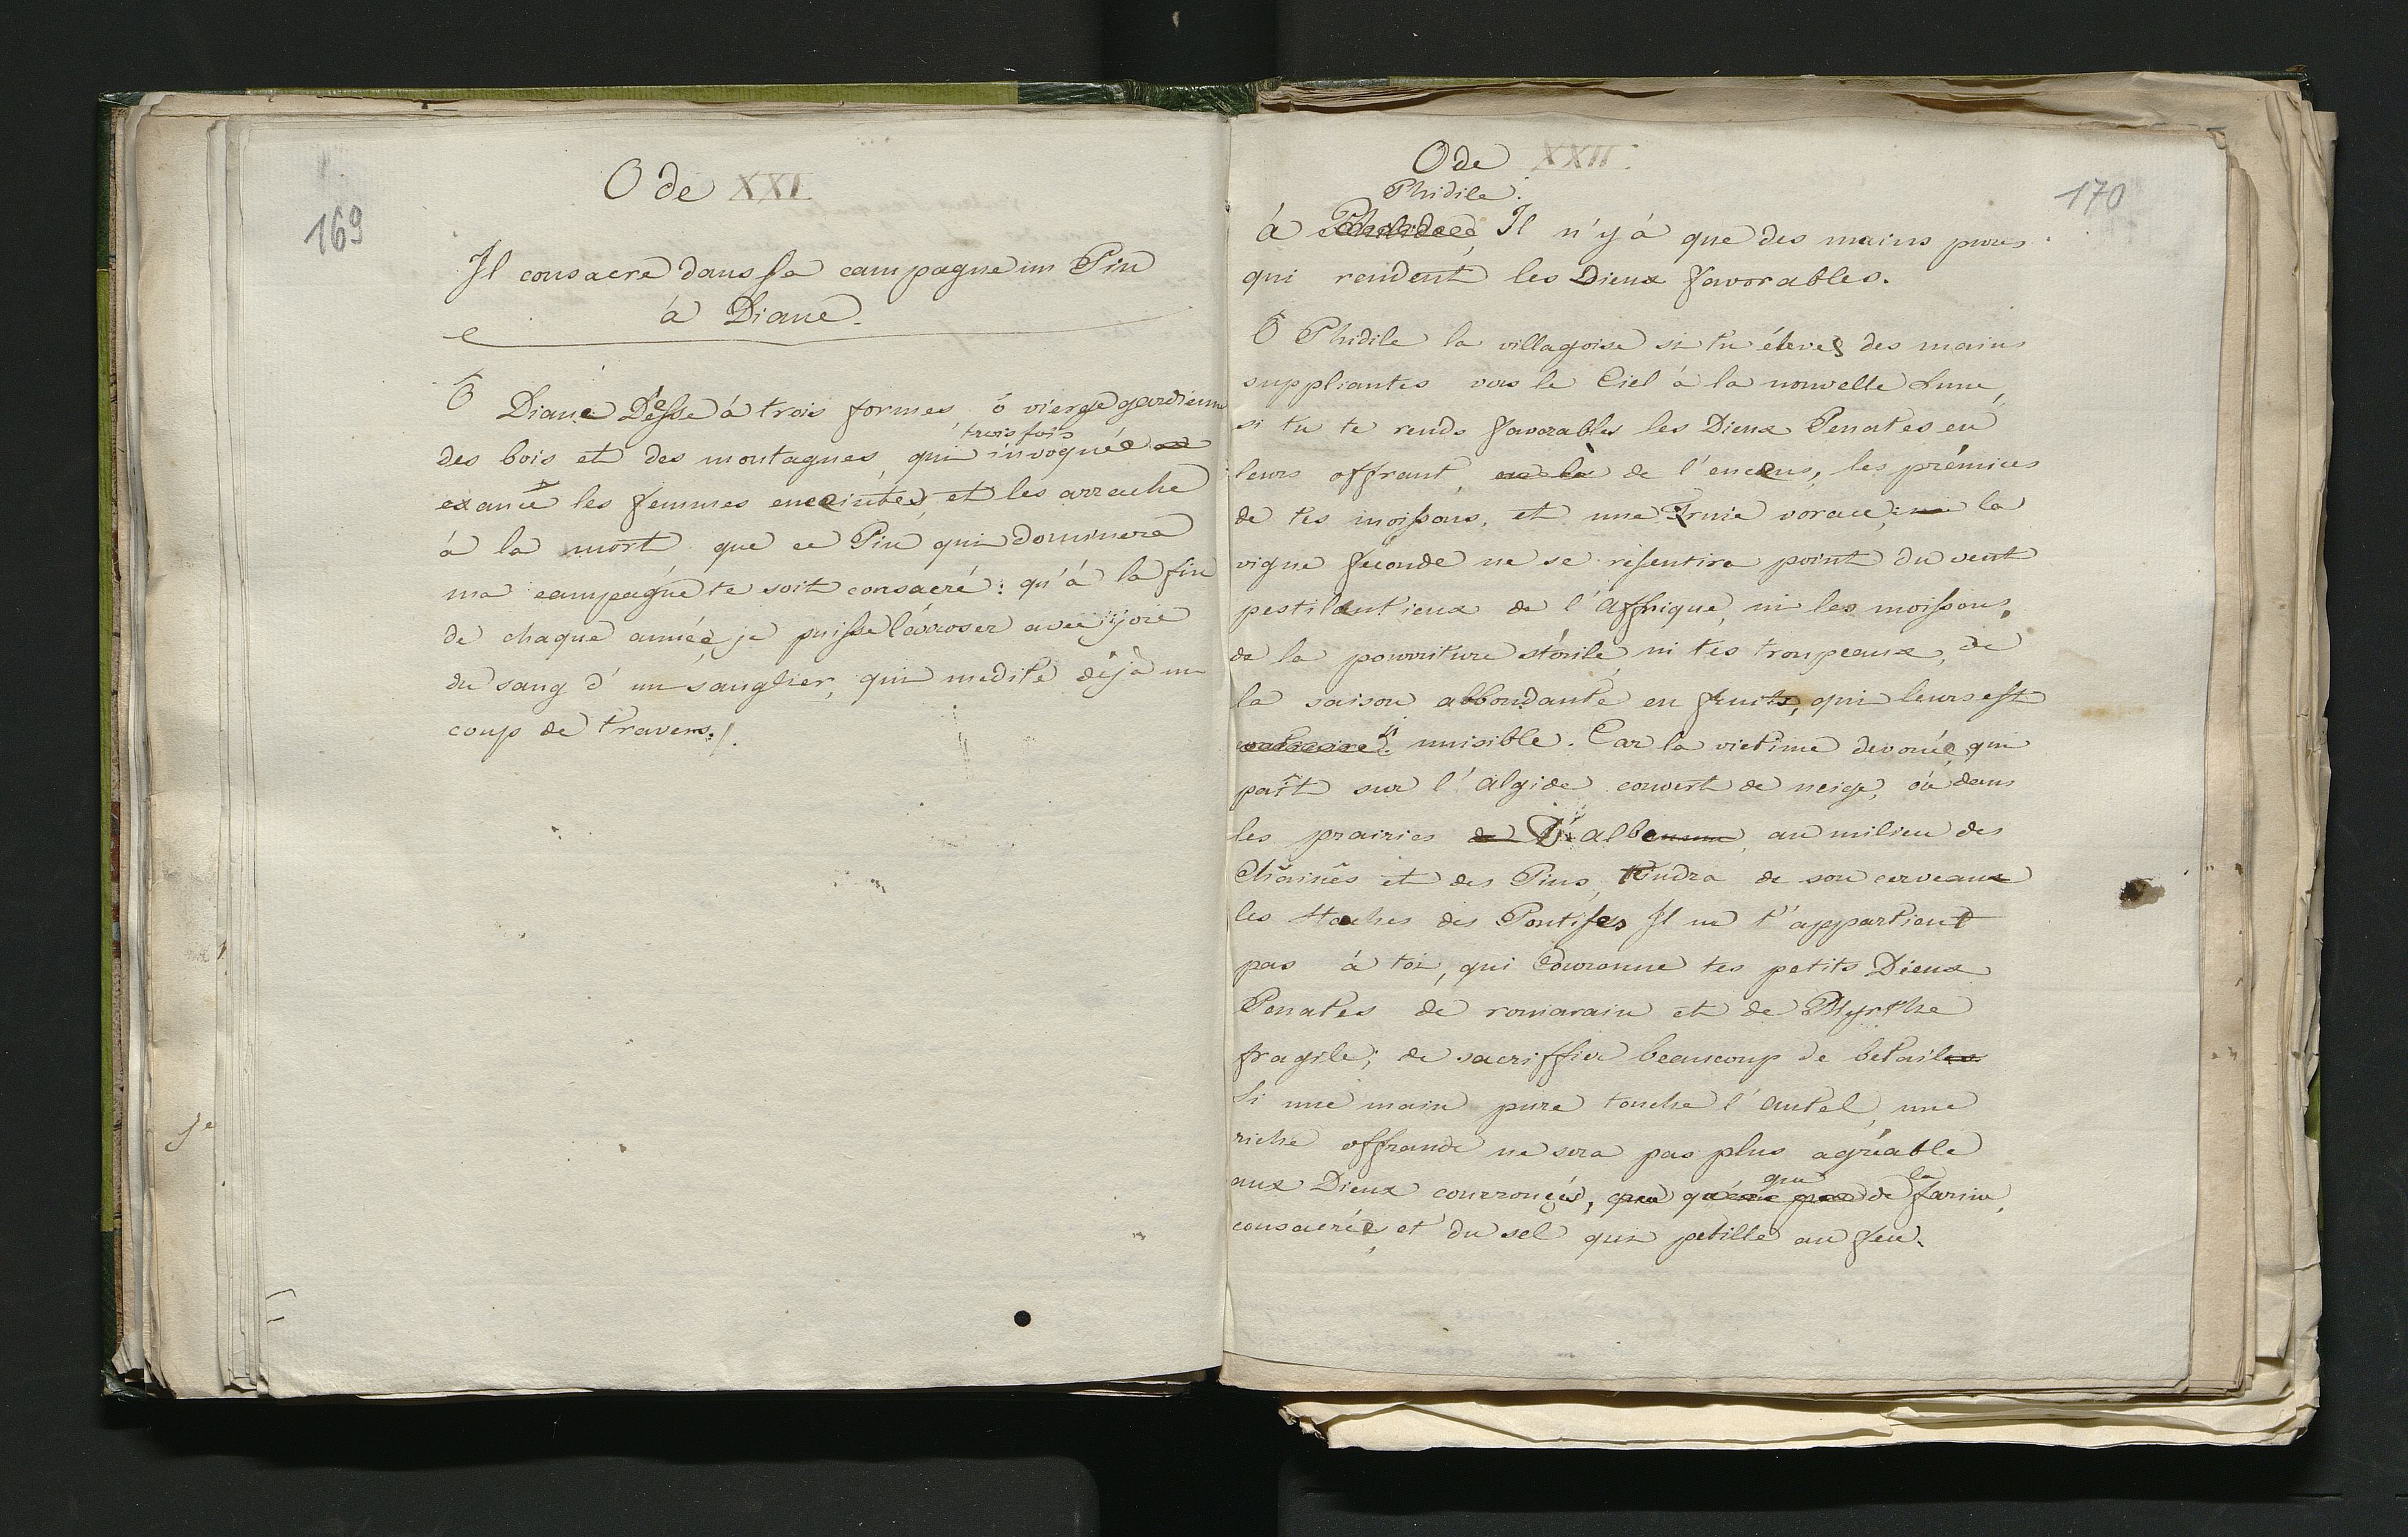 169
Ode XXI
Il consacre dans sa campagne un Pin
à Diane.
Ô Diane Déesse à trois formes, ô vierge gardienne
trois fois
des bois et des montagnes, qui invoquée
exauce les femmes enceintes, et les arrache
à la mort, que ce Pin qui dominera
ma campagne te soit consacré : qu'à la fin
de chaque année, je puisse l'arroser avec joie
du sang d'un sanglier, qui medite déjà un
coup de travers.
170
Ode XXII.
Phidile.
à Il n'y à que des mains pures
qui rendent les Dieux favorables.
Ô Phidile la villagoise si tu éleves des mains
suppliantes vers le Ciel à la nouvelle Lune,
si tu te rends favorables les Dieux Penates en
leurs offrant, de l'encens, les prémices
de tes moissons, et une Truie vorace; la
vigne feconde ne se resentira point du vent
pestilentieux de l'Affrique, ni les moissons,
de la pourriture stérile, ni tes troupeaux, de
la saison abbondante en fruits, qui leurs est
nuisible. Car la victime devouée, qui
paît sur l'Algide couvert de neige, où dans
les prairies D'albe, au milieu des
Chaînes et des Pins, teindra de son cerveau
les Haches des Pontifes Il ne t'appartient
pas à toi, qui Couronne tes petits Dieux
Penates de romarain et de Myrthe
fragile; de sacriffier beaucoup de betail
Si une main pure touche l'autel, une
riche offrande ne sera pas plus agréable
que la
aux Dieux courroucés, de farine,
consacrée, et du sel qui petille au feu.